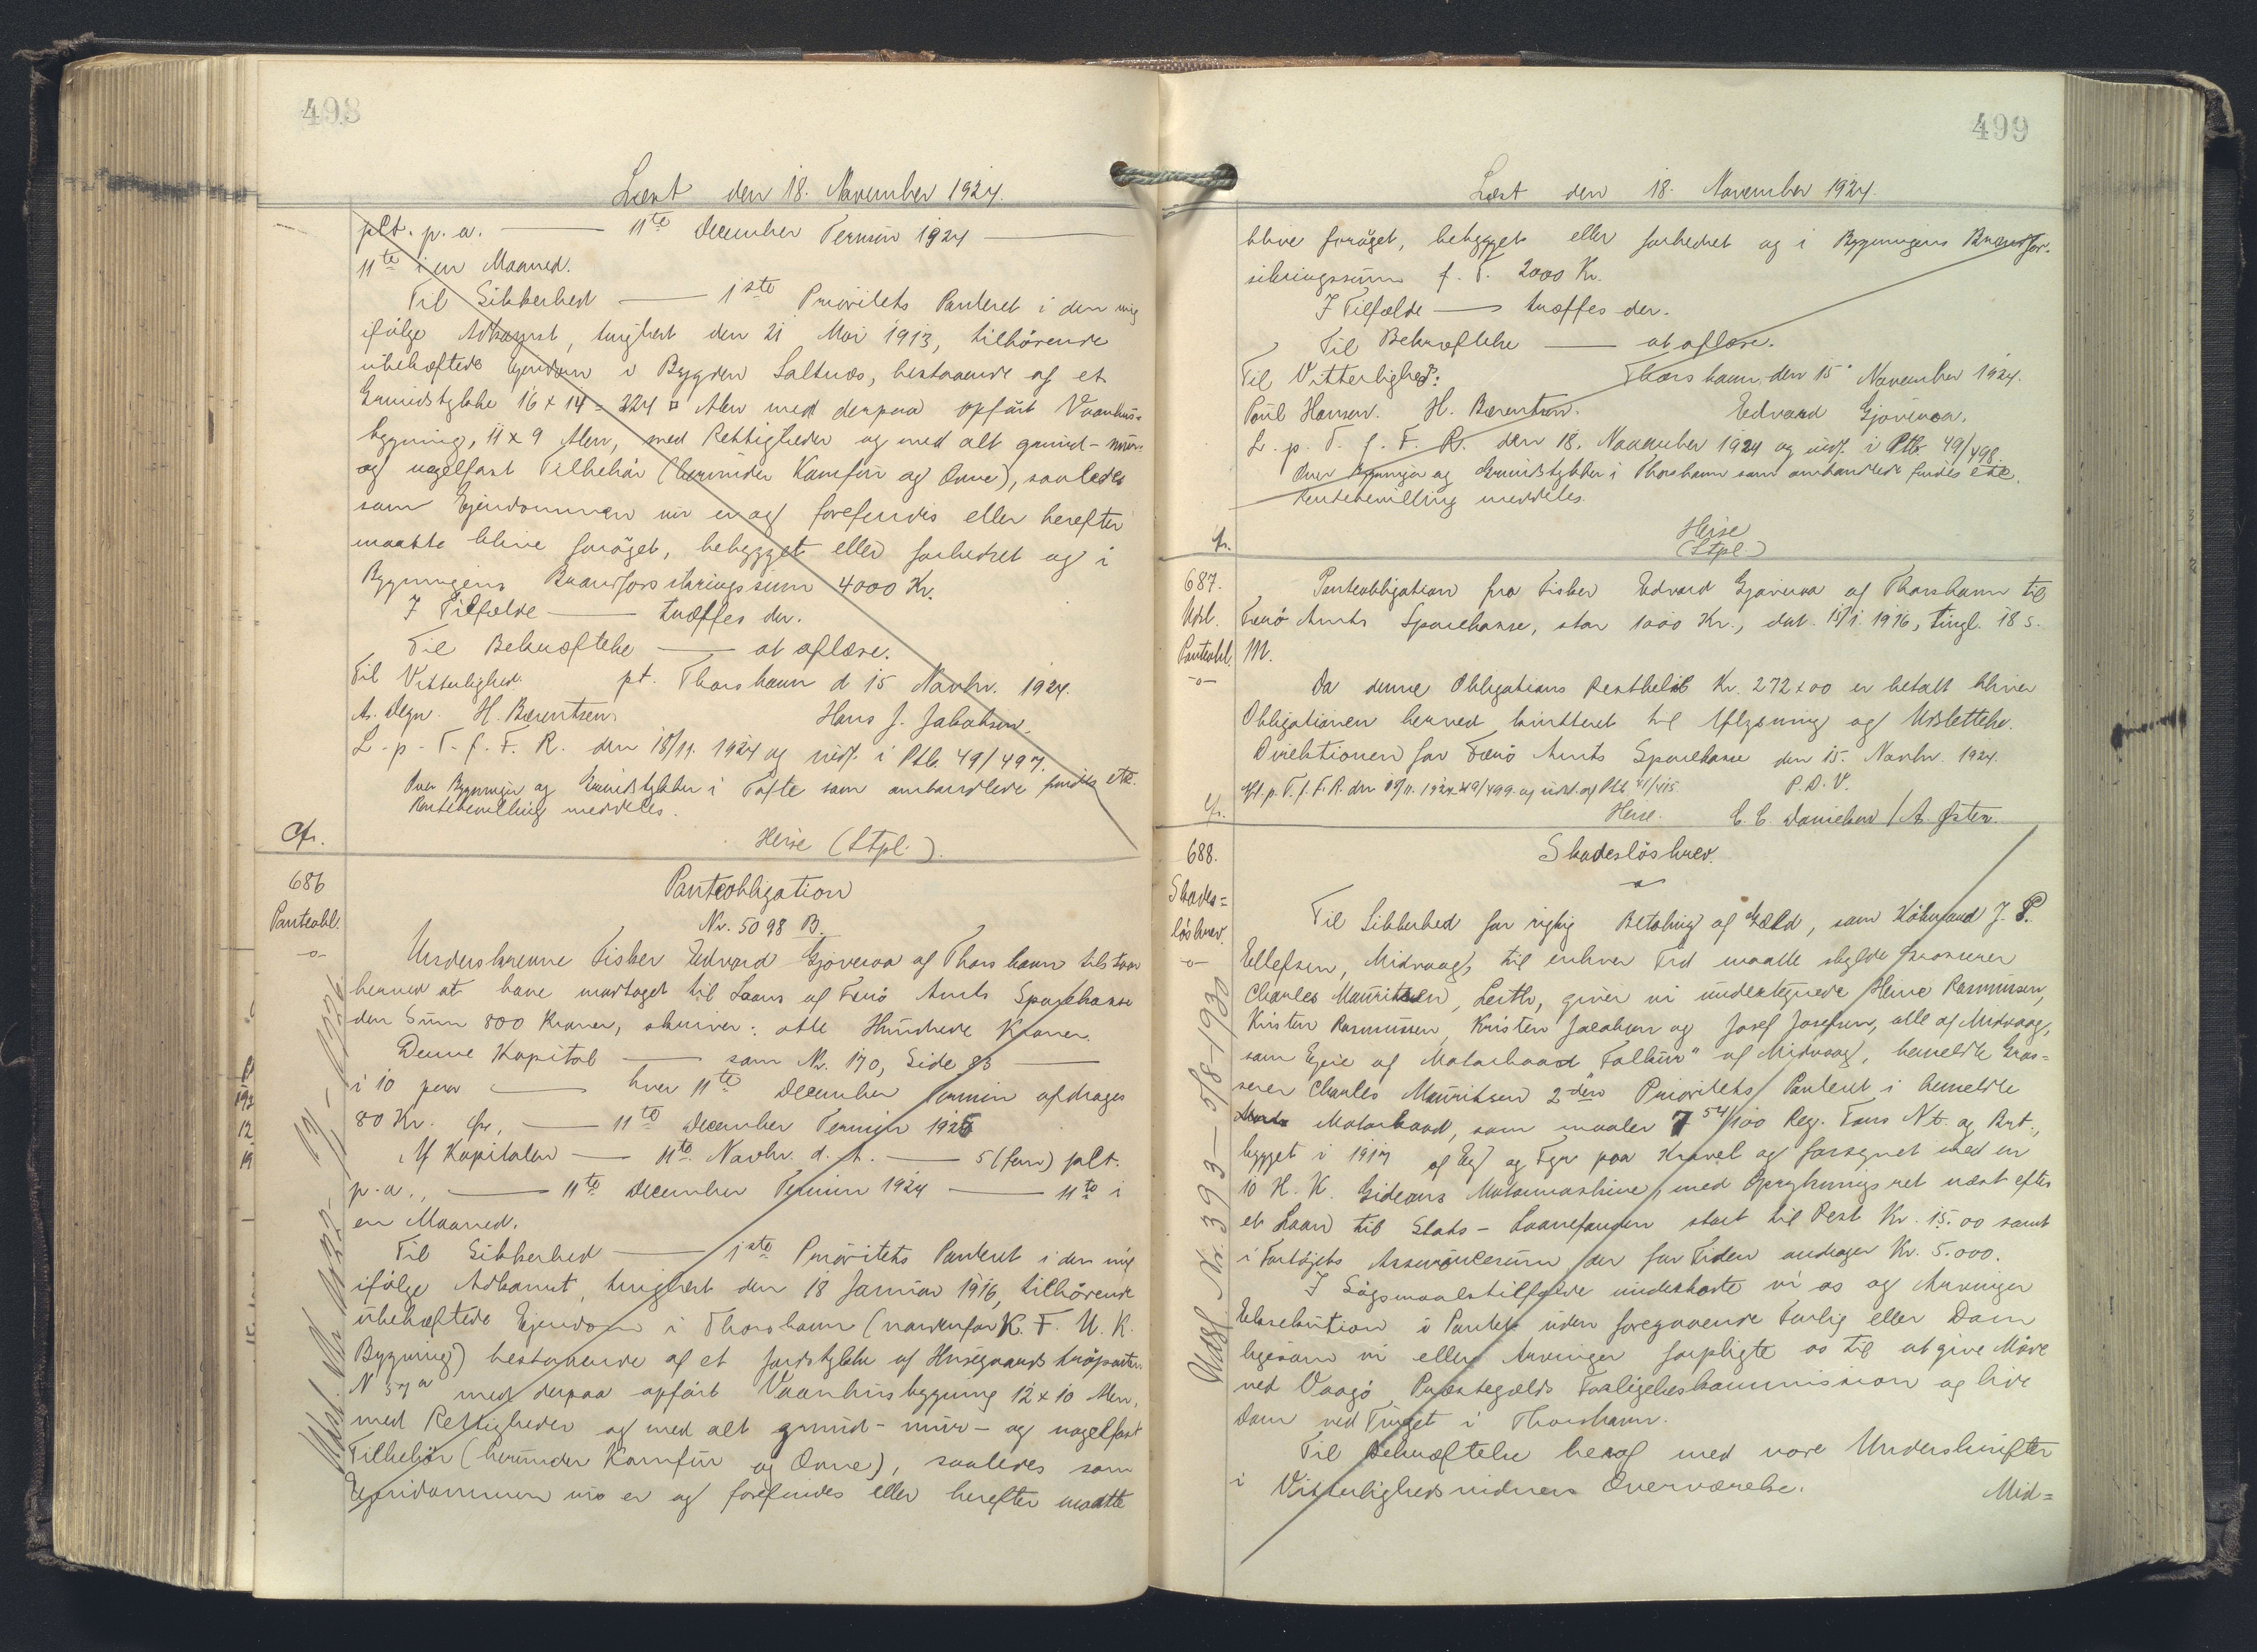 498
Læst den 18. November 1924.
plt. p. a. — 11te December Termin 1924 —
11te i en Maaned.
Til Sikkerhed — 1ste Prioritets Panteret i den mig
ifölge Adkomst, tinglæst den 21 Mai 1913, tilhörende
ubehæftede Ejendom i Bygden Saltnæs, bestaaende af et
Grundstykke 16 x 14 = 224 □ Alen med derpaa opfört Vaanhus=
bygning, 11 x 9 Alen, med Rettigheder og med alt grund- mur-
og nagelfast Tilbehör (herunder Komfur og Ovne), saaledes
som Ejendommen nu er og forefindes eller herefter
maatte blive foröget, bebygget eller forbedret og i
Bygningens Brandforsikringssum 4000 Kr.
I Tilfælde — træffes der.
Til Bekræftelse — at aflæse.
Til Vitterlighed. pt. Thorshavn d 15 Novbr. 1924.
A. Degn. H. Bærentsen. Hans J. Jakobsen.
L. p. T. f. F. R. den 18/11. 1924 og indf. i Ptb. 49/497.
Over Bygninger og Grundstykker i Tofte som omhandlede findes etc.
Rentebevilling meddeles.
Heise (Stpl.)
Cfr.
686
Panteobl.
-o-
Panteobligation
Nr. 5098 B.
Underskrevne Fisker Edvard Gjøveraa af Thorshavn tilstaar
herved at have modtaget til Laans af Færö Amts Sparekasse
den Sum 800 Kroner, skriver: otte Hundrede Kroner.
Denne Kapital — som Nr. 170, Side 83 —
i 10 pCt — hver 11te December Termin afdrages
80 Kr. — 11te December Termin 1925
Af Kapitalen — 11te Novbr. d. A. — 5 (fem) plt.
p. a., — 11te December Termin 1924 — 11te i
en Maaned.
Til Sikkerhed — 1ste Prioritets Panteret i den mig
ifölge Adkomst, tinglæst den 18 Januar 1916, tilhörende
ubehæftede Ejendom i Thorshavn (nordenfor K. F. U. K.
Bygning) bestaaende af et Jordstykke af Husegaards
N 57a med derpaa opfört Vaanhusbygning 12 x 10 Alen,
med Rettigheder og med alt grund- mur- og nagelfast
Tilbehör (herunder Komfur og Ovne), saaledes som
Ejendommen nu er og forefindes eller herefter maatte
499
Læst den 18. November 1924.
blive foröget, bebygget eller forbedret og i Bygningens Brandfor-
sikringssum f. T. 2000 Kr.
I Tilfælde — træffes der.
Til Bekræftelse — at aflæse.
Til Vitterlighed: Thorshavn, den 15. November 1924.
Poul Hansen. H. Bærentsen. Edvard Gjøveraa.
L. p. T. f. F. R. den 18. November 1924 og indf. i Ptb. 49/498.
Over Bygninger og Grundstykker i Thorshavn som omhandlede findes etc.
Rentebevilling meddeles.
Heise
(Stpl.)
Cfr.
687.
Udsl.
Panteobl.
-o-
Panteobligation fra Fisker Edvard Gjøveraa af Thorshavn til
Færö Amts Sparekasse, stor 1000 Kr., dat. 15/1. 1916, tingl. 18 s.
M.
Da denne Obligations Restbelöb Kr. 272 x 00 er betalt bliver
Obligationen herved kvitteret til Aflysning og Udslettelse.
Direktionen for Færö Amts Sparekasse den 15. Novbr. 1924.
Aft. p. T. f. F. R. den 18/11. 1924 49/499. og udsl. af Ptb 41/415 P. D. V.
Heise. C. C. Danielsen / A. Østen.
Cfr.
688.
Skades=
lösbrev.
-o-
Skadeslösbrev.
Til Sikkerhed for rigtig Betaling af Gæld, som Köbmand J. P.
Ellefsen, Midvaag, til enhver Tid maatte skylde Grosserer
Charles Mauritzen, Leith, giver vi undertegnede Rasmussen,
Kristen Rasmussen, Kristen Jacobsen og Josef Josefsen, alle af Midvaag,
som Ejere af Motorbaad "Falkur" af Midvaag, bemeldte Gros=
serer Charles Mauritzen 2den Prioritets Panteret i bemeldte
Motorbaad, som maaler 7 54/100 Reg. Tons Nt. og Brt.,
bygget i 1917 af Eg og Fyr paa Kravel og forsynet med en
10 H. K. Gideons Motormaskine, med Oprykningsret næst efter
et Laan til Stats-Laanefonden stort til Rest Kr. 15.00 samt
i Fartöjets Assurancesum der for Tiden andrager Kr. 5.000.
I Sögsmaalstilfælde underkaste vi os og Arvinger
Exsekution i Pantet uden foregaaende Forlig eller Dom
ligesom vi eller Arvinger forpligte os til at give Möde
ved Vaagö Præstegælds Forligelseskommission og lide
Dom ved Tinget i Thorshavn.
Til Bekræftelse heraf med vore Underskrifter
i Vitterlighedsvidners Overværelse. Mid=
Udsl. Nr. 393 — 5/8-1930